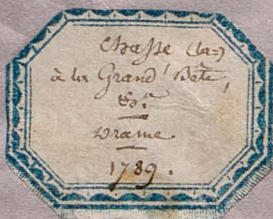 Chasse (la=)
à la Grand' Bête,
Drame.
1789.